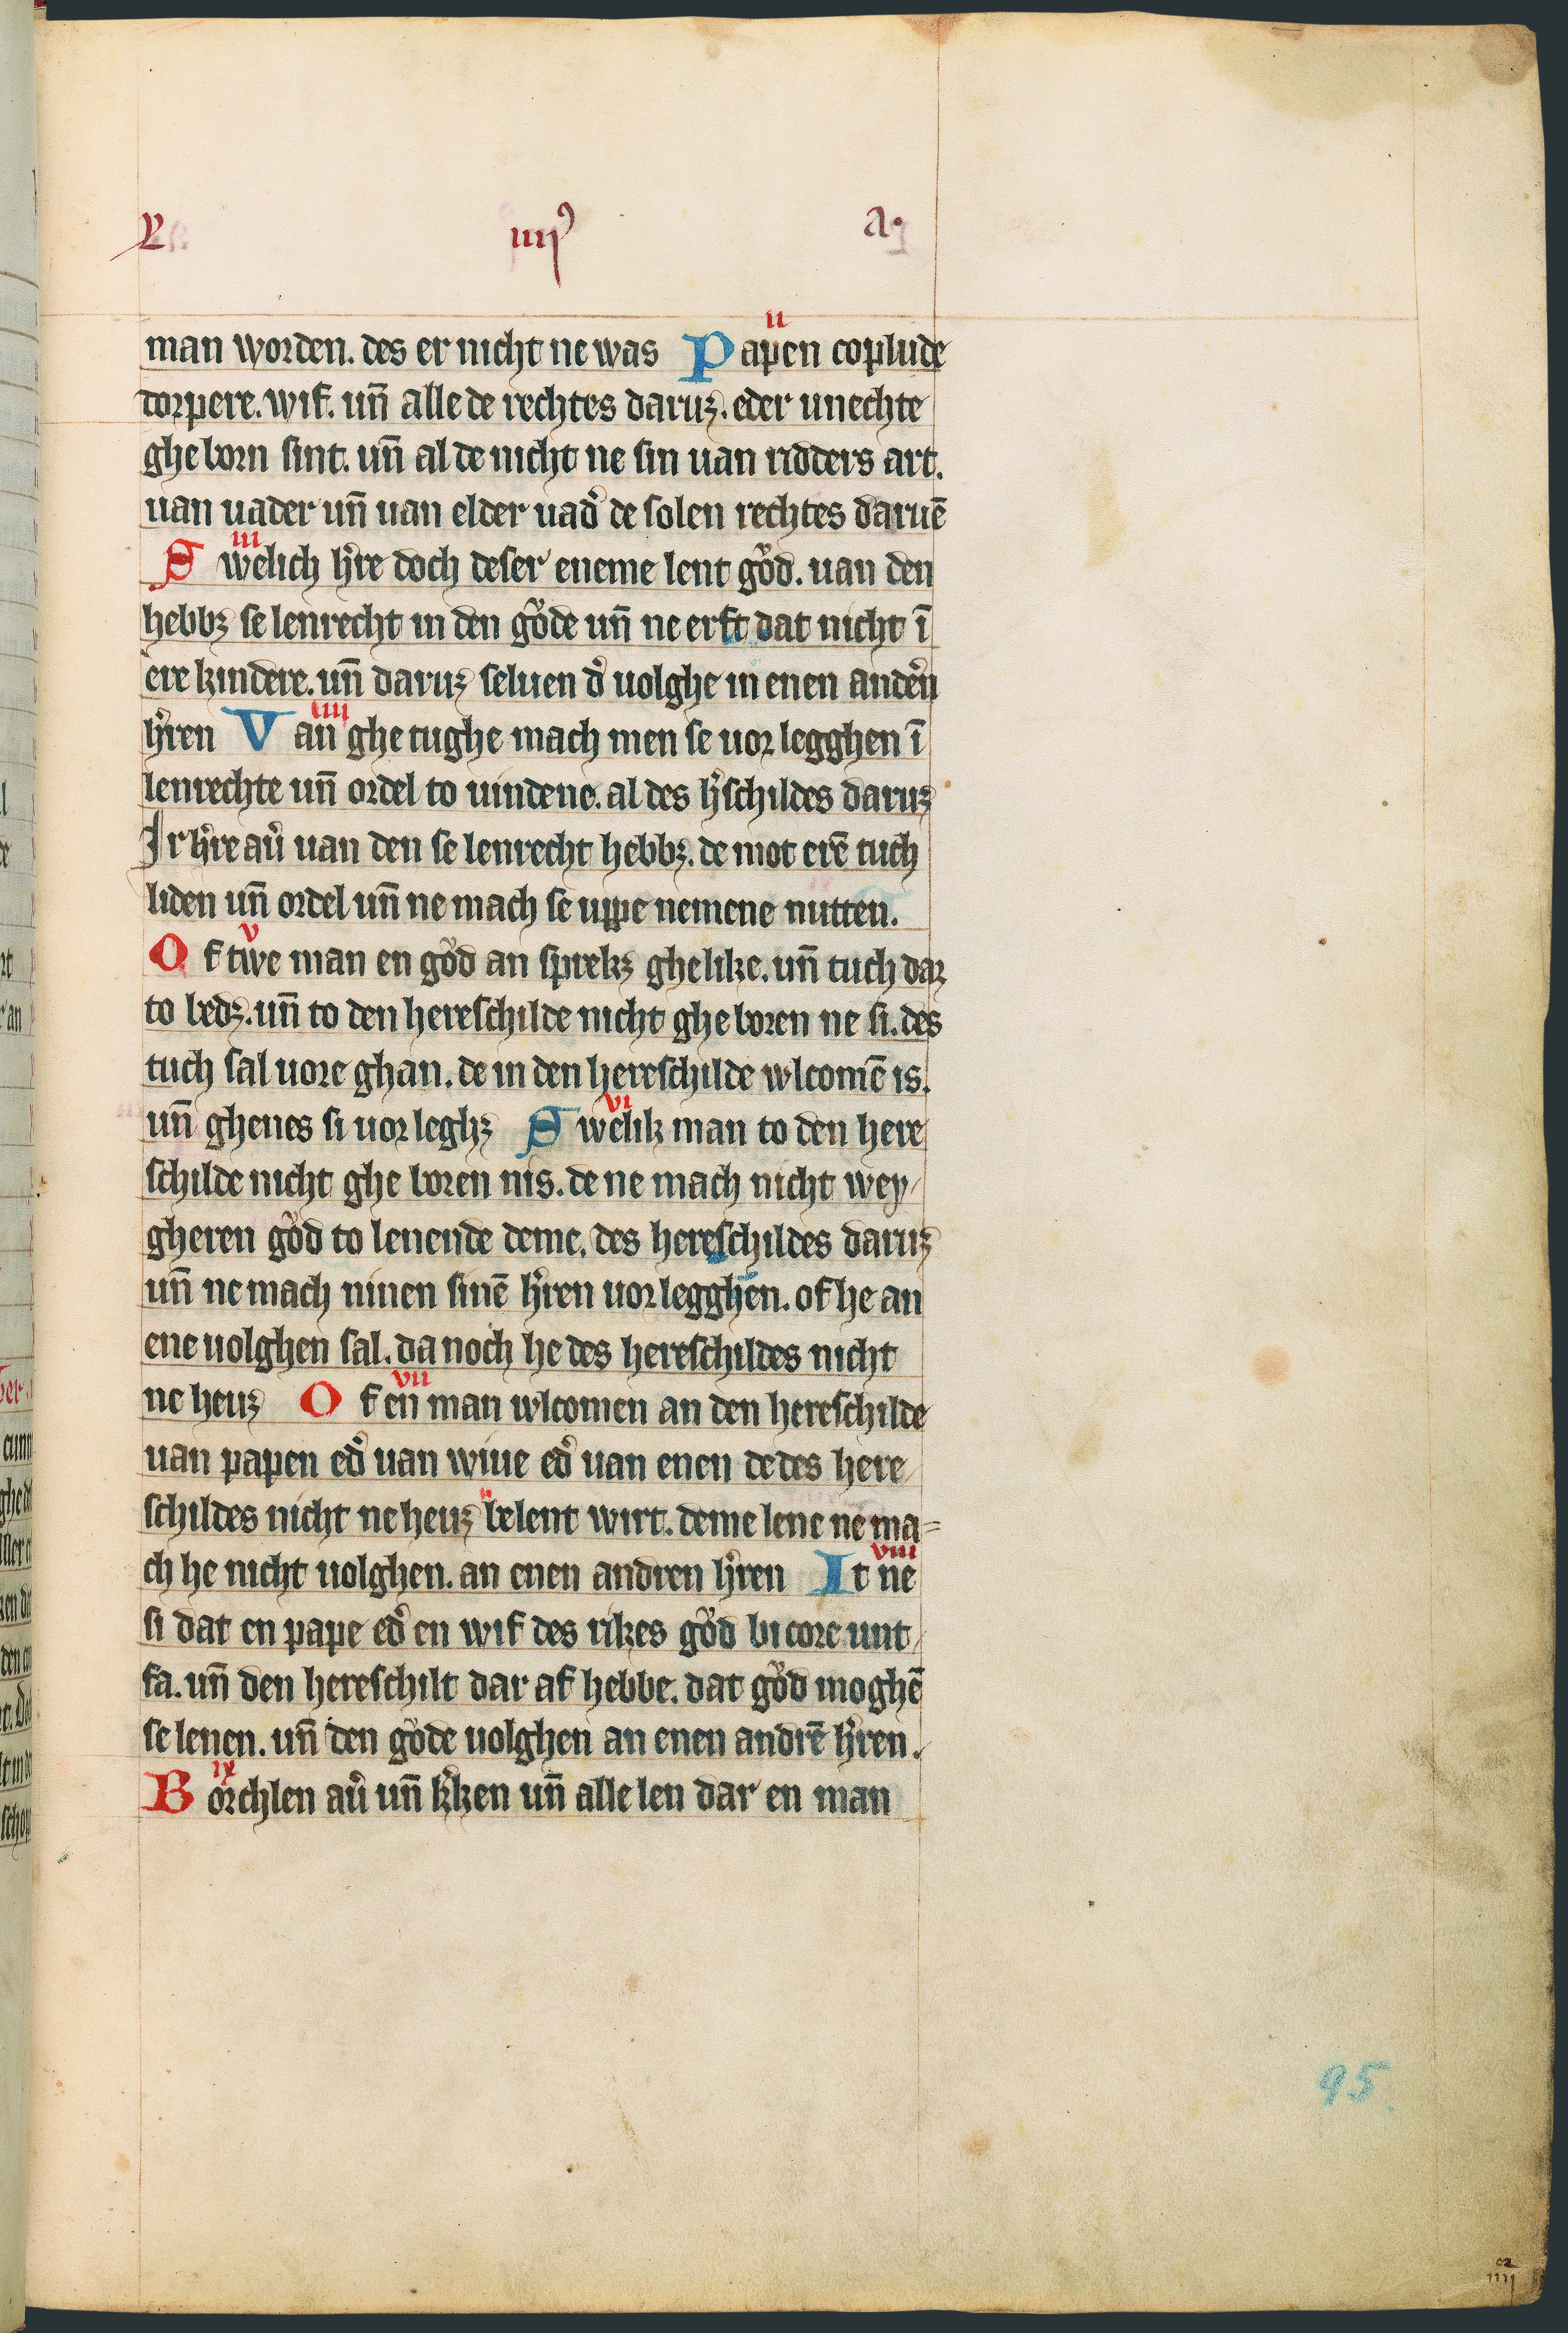 L iiij⁹ a.
ii
man worden. des er nicht ne was Papen coplude
dorpere. wif. un̄ alle de rechtes daruꝫ. eder unechte
ghe born sint. un̄ al de nicht ne sin uan ridders art.
uan uader un̄ uan elder uad᷑ de solen rechtes daruē
iii
Swelich h᷑re doch deser eneme lent goͮd. uan den
hebbꝫ se lenrecht in den goͮde un̄ ne erft dat nicht ī
ere kindere. un̄ daruꝫ seluen d᷑ uolghe in enen anden᷑
h᷑ren Uan ghe tughe mach men se uor legghen ī
iiii
lenrechte un̄ ordel to uindene. al des h᷑schildes daruꝫ
Ir h᷑re au᷑ uan den se lenrecht hebbꝫ. de mot erē tuch
liden un̄ ordel un̄ ne mach se uppe nemene nutten.
v
Of twe man en goͮd an sprekꝫ ghelike. un̄ tuch dar
to bedꝫ. un̄ to den hereschilde nicht ghe boren ne si. des
tuch sal uore ghan. de in den hereschilde wlcomē is.
un̄ ghenes si uor leghꝫ Swelik man to den here
vi
schilde nicht ghe boren nis. de ne mach nicht wey-
gheren goͮd to lenende deme. des hereschildes daruꝫ
un̄ ne mach ninen sinē h᷑ren uor legghen. of he an
ene uolghen sal. da noch he des hereschildes nicht
ne heuꝫ Of en man wlcomen an den hereschilde
vii
uan papen ed᷑ uan wiue ed᷑ uan enen de des here
schildes nicht ne heuꝫ belent wirt. deme lene ne ma=
ch he nicht uolghen. an enen andren h᷑ren It ne
viii
si dat en pape ed᷑ en wif des rikes goͮd bi core unt
fa. un̄ den hereschilt dar af hebbe. dat goͮd moghē
se lenen. un̄ den goͮde uolghen an enen andrē h᷑ren.
ix
Borchlen au᷑ un̄ k᷑ken un̄ alle len dar en man
95